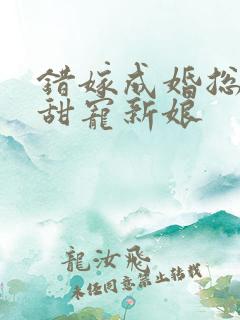 错嫁成婚总
甜宠新娘
龍汝飛
未经同意禁止转载